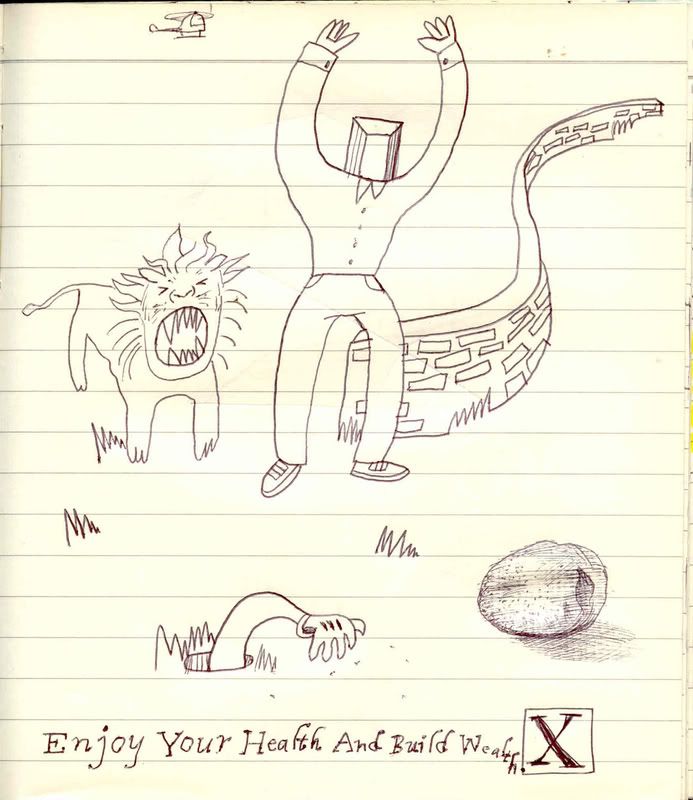 Enjoy Your Health And Build Wealth. X